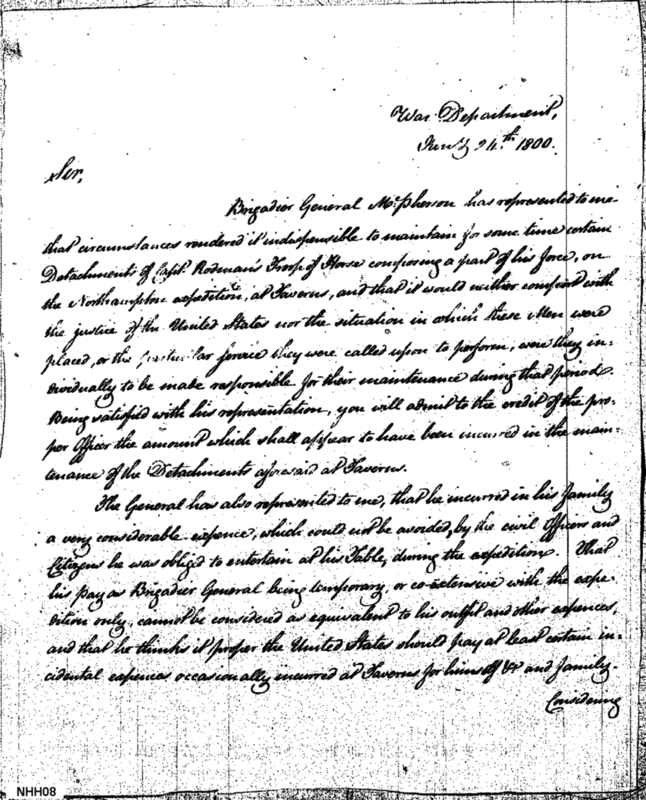 War Department,
Jan'y 24th 1800.
Sir,
Brigadier General McPherson has represented to me
that circumstances rendered it indispensible to maintain for some time certain
Detachments of Capt. Rodman's Troop of Horse composing a part of his force, on
the Northampton expedition, at Taverns, and that it would neither comport with
the justice of the United States nor the situation in which these Men were
placed, or the particular service they were called upon to perform, were they in-
dividually to be made responsible for their maintenance during that period.
Being satisfied with his representation, you will admit to the credit of the pro-
per Officer the amount which shall appear to have been incurred in the main-
tenance of the Detachments aforesaid at Taverns.
The General has also represented to me, that he incurred in his family
a very considerable expence, which could not be avoided, by the civil Officers and
Citizens he was obliged to entertain at his Table, during the expedition. That
his pay as Brigadier General being temporary, or co-extensive with the expe-
dition only, cannot be considered as equivalent to his outfit and other expences,
and that he thinks it proper the United States should pay at least certain in-
cidental expences occasionally incurred at Taverns for himself and family.
Considering
NHH08